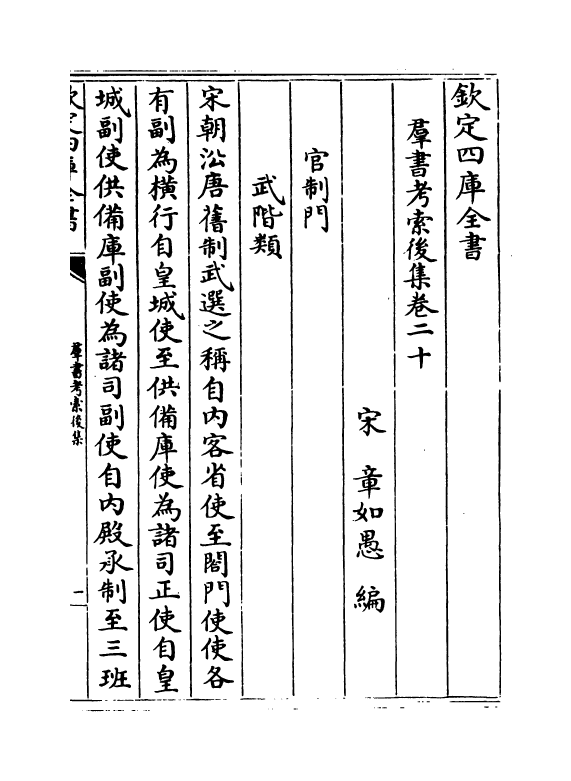 欽定四庫全書
羣書考索後集卷二十
宋 章如愚 編
官制門
武階類
宋朝沿唐舊制武選之稱自内客省使至閤門使使各
有副為橫行自皇城使至供備庫使為諸司正使自皇
城副使供備庫副使為諸司副使自内殿承制至三班
欽定四庫全書
羣書考索後集
一